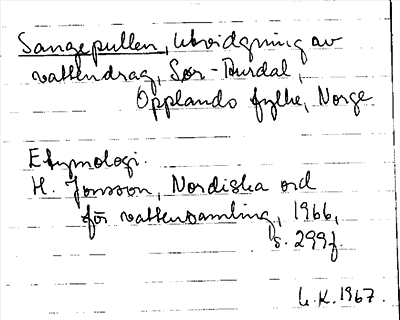 Sangepullen, utvidgning av
vattendrag, Sør-Aurdal,
Opplands fylke, Norge
Etymologi.
H. Jonsson, Nordiska ord
för vattensamling, 1966,
s. 299f.
L.K. 1967.